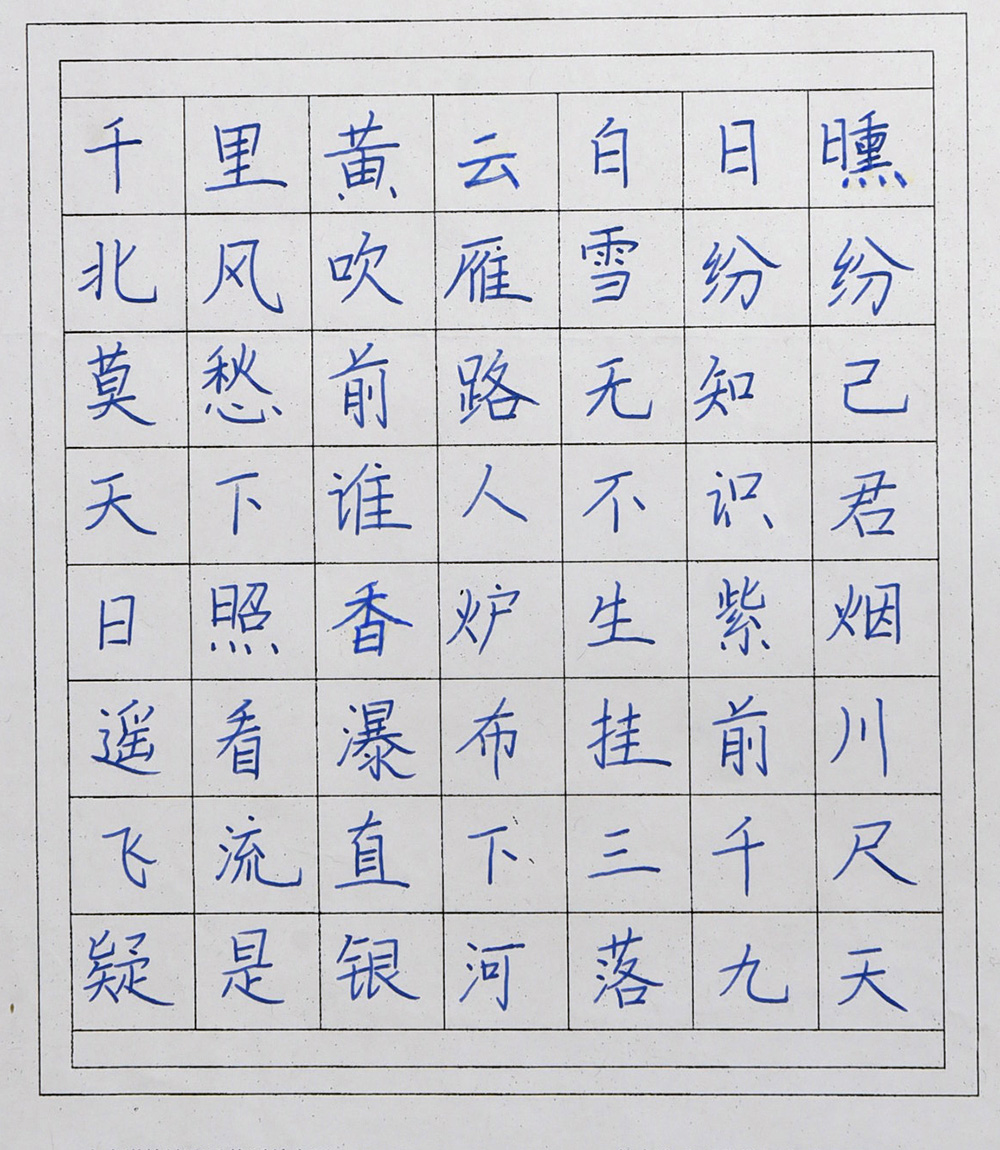 千里黄云白日曛
北风吹雁雪纷纷
莫愁前路无知己
天下谁人不识君
日照香炉生紫烟
遥看瀑布挂前川
飞流直下三千尺
疑是银河落九天